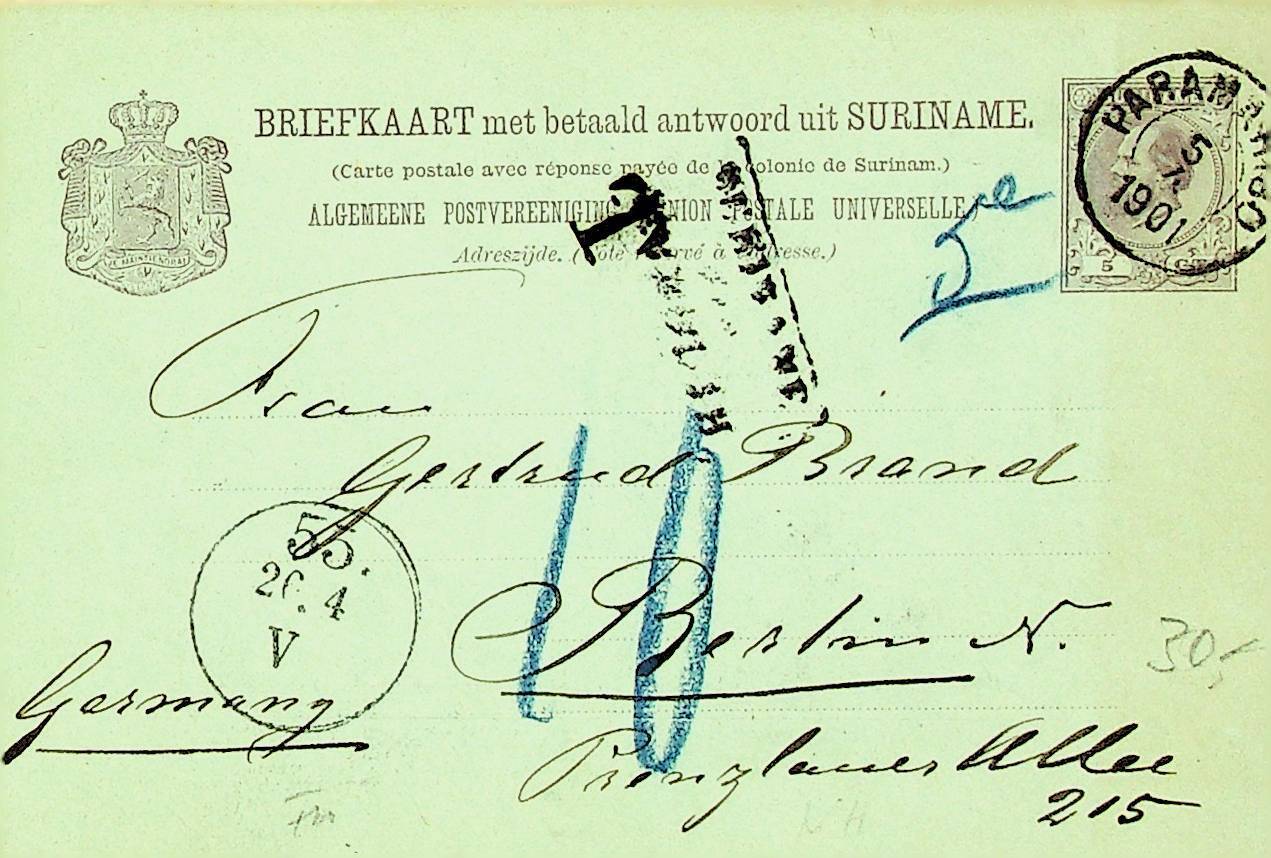 BRIEFKAART met betaald antwoord uit SURINAME.
(Carte postale avec réponse payée de la colonie de Surinam.)
ALGEMEENE POSTVEREENIGING UNION POSTALE UNIVERSELLE
Adreszijde. (Côté réservé à l'adresse.)
JE MAINTIENDRAI
PARAMARIBO
1901
5 CT
T
5
Frau
Gertrud Brand
10
Berlin N.
Prenzlauer Allee
215
Germany
55.
4
V
30